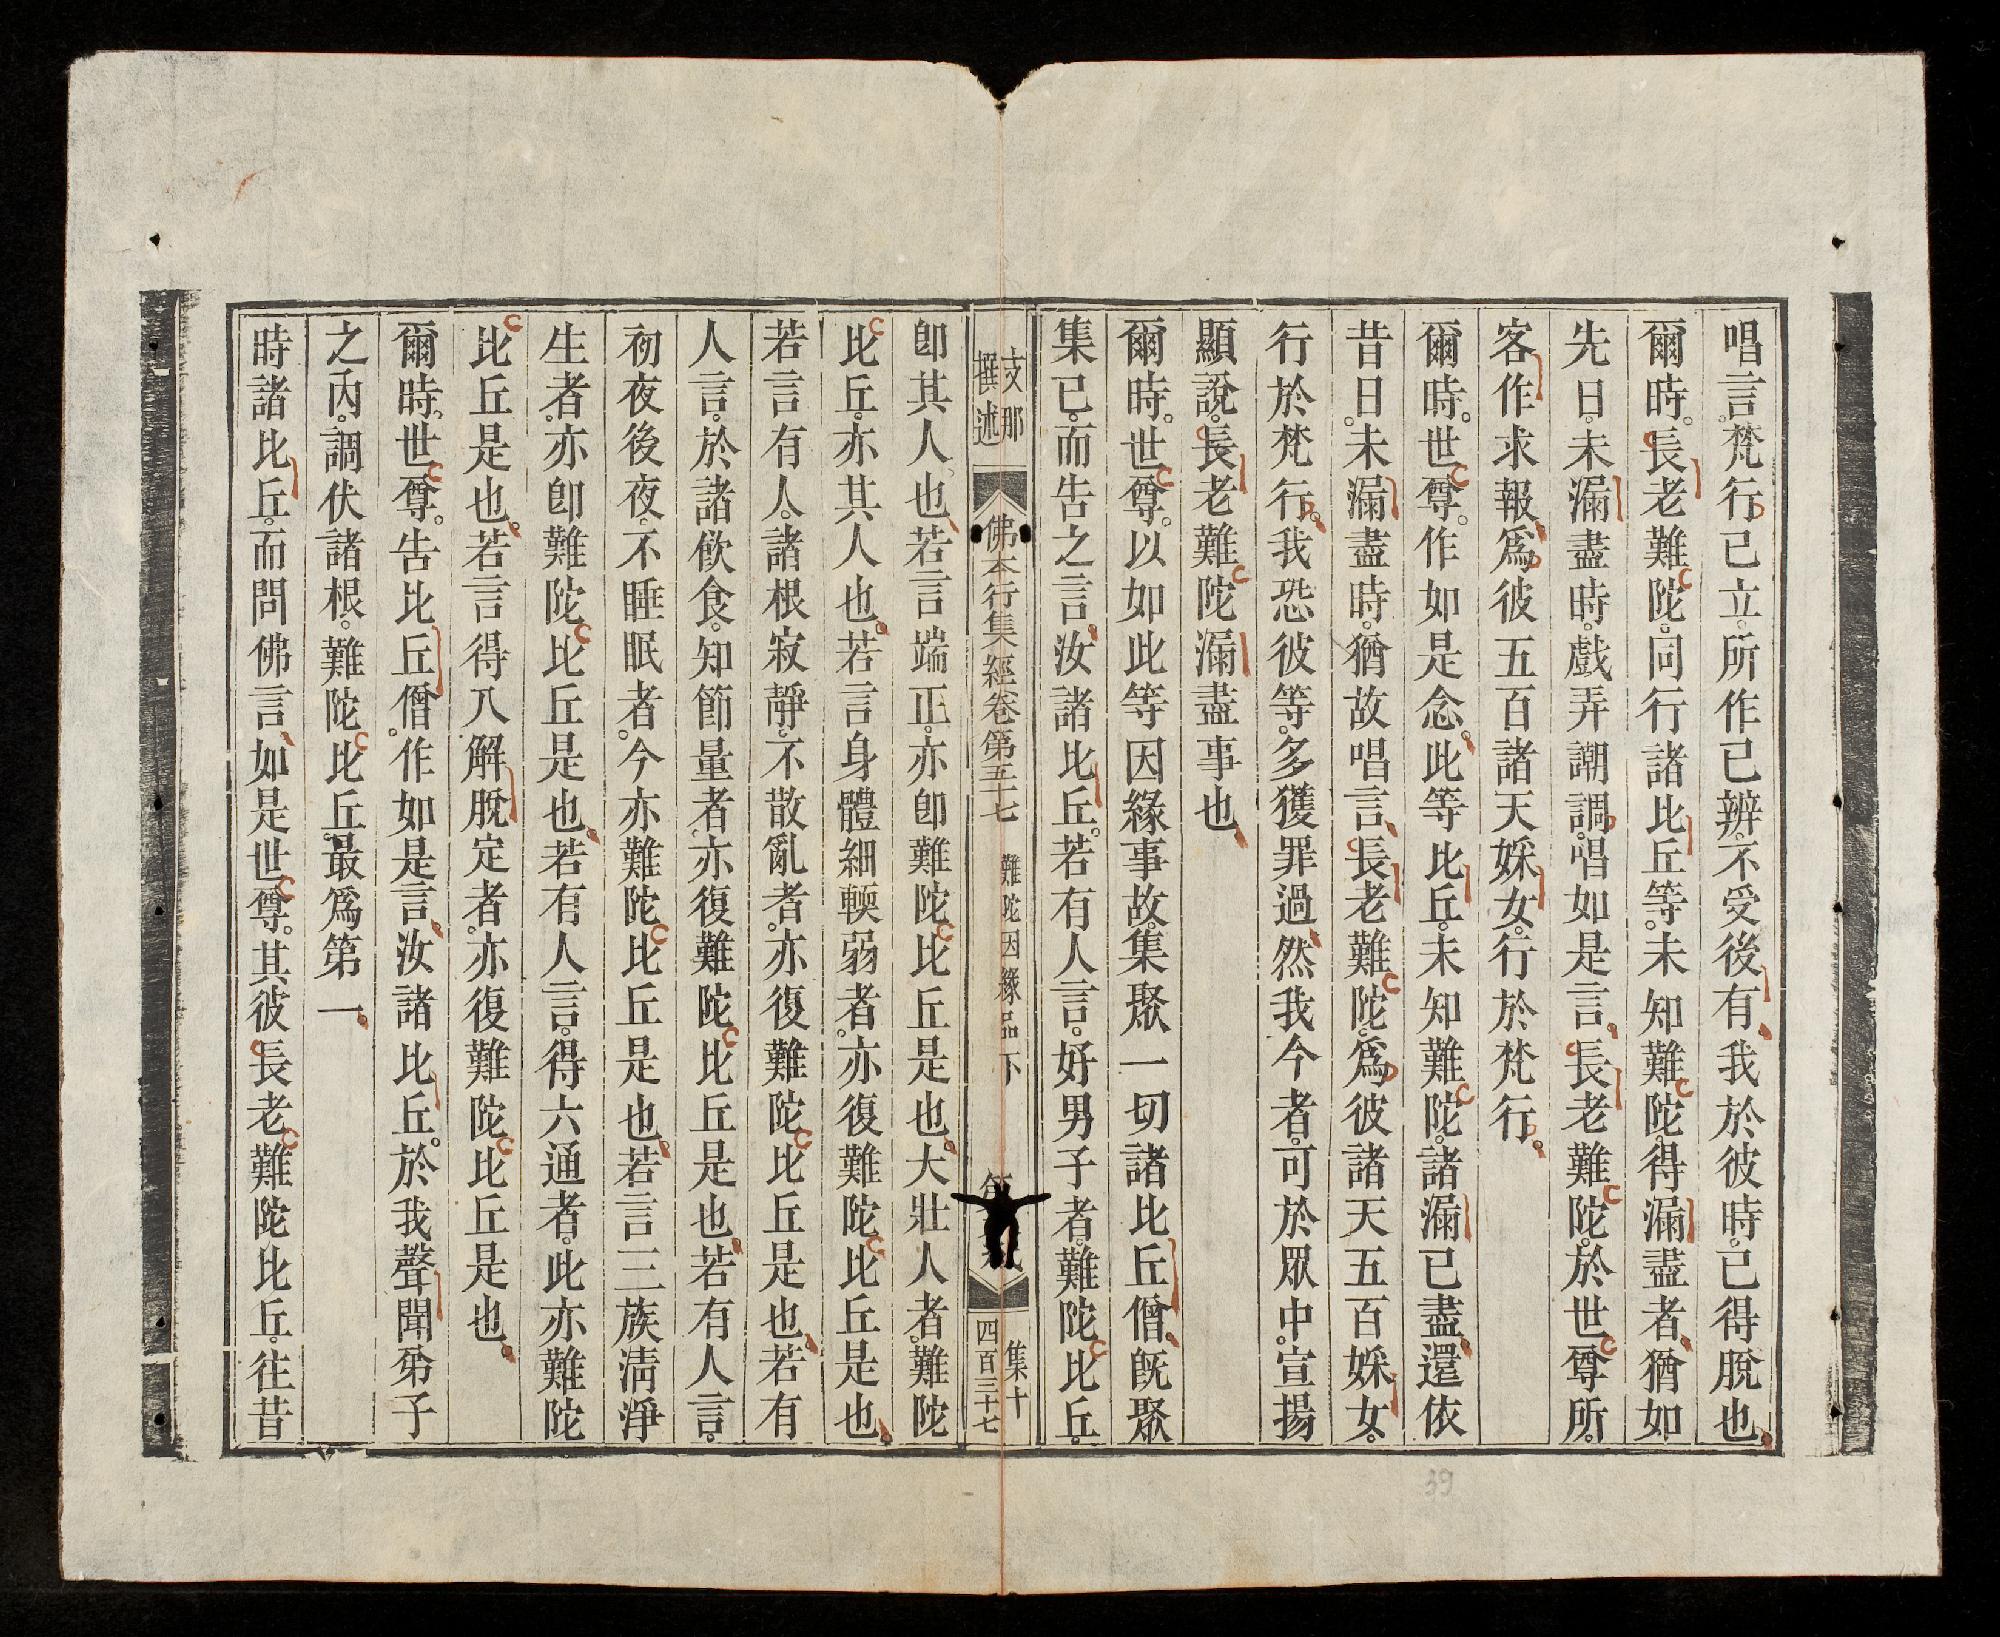 唱言。梵行已立。所作已辨。不受後有。我於彼時。已得脫也。
爾時。長老難陀。同行諸比丘等。未知難陀。得漏盡者。猶如
先日。未漏盡時。戲弄調。唱如是言。長老難陀。於世尊所。
客作求報。爲彼五百諸天婇女。行於梵行。
爾時。世尊。作如是念。此等比丘。未知難陀。諸漏已盡。還依
昔日。未漏盡時。猶故唱言。長老難陀。爲彼諸天五百婇女。
行於梵行。我恐彼等。多獲罪過。然我今者。可於眾中。宣揚
顯說。長老難陀漏盡事也。
爾時。世尊。以如此等因緣事故。集聚一切諸比丘僧。旣聚
集已。而告之言。汝諸比丘。若有人言。好男子者。難陀比丘。
支那
撰述
佛本行集經卷第五十七 難陀因緣品下
集十
四百三十七
卽其人也。若言端正。亦卽難陀比丘是也。大壯人者。難陀
比丘。亦其人也。若言身體細輭弱者。亦復難陀比丘是也。
若言有人。諸根寂靜。不散亂者。亦復難陀比丘是也。若有
人言。於諸飮食。知節量者。亦復難陀比丘是也。若有人言。
初夜後夜。不睡眠者。今亦難陀比丘是也。若言三族淸淨
生者。亦卽難陀比丘是也。若有人言。得六通者。此亦難陀
比丘是也。若言得八解脫定者。亦復難陀比丘是也。
爾時。世尊。告比丘僧。作如是言。汝諸比丘。於我聲聞弟子
之內。調伏諸根。難陀比丘。最爲第一。
時諸比丘。而問佛言。如是世尊。其彼長老難陀比丘。往昔
39